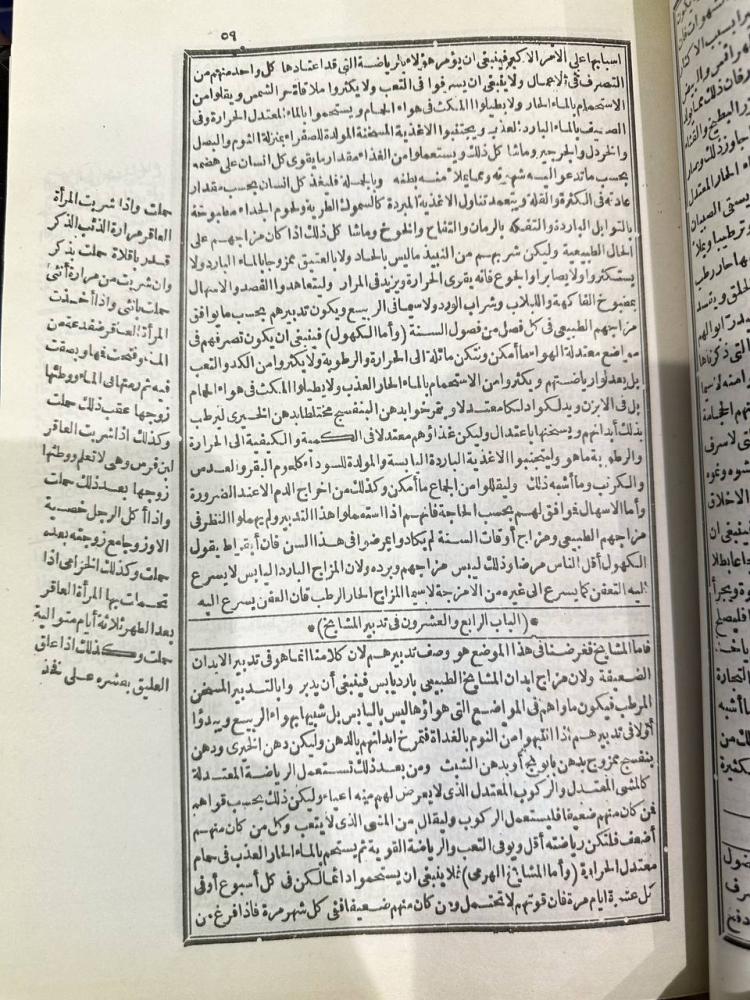 ٥٩
اسبابها على الامر الاكبر فينبغى ان يؤمر هؤلاء بالرياضة التى قد اعتادها كل واحد منهم من
التصرف فى الاعمال ولا ينبغى ان يسرفوا فى التعب ولا يكثروا ملاقاة حر الشمس ويقلوا من
الاستحمام بالماء الحار ولا يطيلوا المكث فى هواء الحمام ويستحموا بالماء المعتدل الحرارة وفى
الصيف بالماء البارد العذب ويجتنبوا الاغذية المسخنة المولدة للصفراء بمنزلة الثوم والبصل
والخردل والجرجير وما شا كل ذلك ويستعملوا من الغذاء مقدار ما يقوى كل انسان على هضمه
بحسب ما تدعو اليه شهوته ومما يملا منه بطنه وبالجملة فليغذ كل انسان بحسب مقدار
عادته فى الكثرة والقلة ويتعمد تناول الاغذية المبردة كالسموك الطرية ولحوم الجداء مطبوخة
بالتوابل الباردة والتفكه بالرمان والتفاح والخوخ وما شا كل ذلك اذا كان مزاجهم على
الحال الطبيعية وليكن شربهم من النبيذ ماليس بالحاد ولا بالعتيق ممزوجا بالماء البارد ولا
يستكثروا ولا يصابروا الجوع فانه يقوى الحرارة ويزيد فى المرار وليتعاهدوا الفصد والاسهال
بمطبوخ الفاكهة واللبلاب وشراب الورد ولاسيما فى الربيع ويكون تدبيرهم بحسب ما يوافق
مزاجهم الطبيعى فى كل فصل من فصول السنة (وأما الكهول) فينبغى ان يكون تصرفهم فى
مواضع معتدلة الهواء ما أمكن وتكن مائلة الى الحرارة والرطوبة ولا يكثروا من الكد والتعب
بل يعدلوا رياضتهم ويكثروا من الاستحمام بالماء الحار العذب ولا يطيلوا المكث فى هواء الحمام
بل فى الابزن ويدلكوا دلكا معتدلا ويتمرخوا بدهن البنفسج مختلطا بدهن الخيرى ليرطب
بذلك أبدانهم ويسخنها باعتدال وليكن غذاؤهم معتدلا فى الكمية والكيفية الى الحرارة
والرطوبة ما هو وليجتنبوا الاغذية الباردة اليابسة والمولدة للسوداء كلحوم البقر والعدس
والكرنب وما أشبه ذلك وليقللوا من الجماع ما أمكن وكذلك من اخراج الدم الا عند الضرورة
وأما الاسهال فوافق لهم بحسب الحاجة فانهم اذا استعملوا هذا التدبير ولم يهملوا النظر فى
مزاجهم الطبيعى ومزاج أوقات السنة لم يكادوا يمرضوا فى هذا السن فان أبقراط يقول
الكهول أقل الناس مرضا وذلك ليبس مزاجهم وبرده ولان المزاج البارد اليابس لا يسرع
اليه التعفن كما يسرع الى غيره من الامزجة لاسيما المزاج الحار الرطب فان العفن يسرع اليه
*(الباب الرابع والعشرون فى تدبير المشايخ)*
فاما المشايخ فغرضنا فى هذا الموضع هو وصف تدبيرهم لان كلامنا انما هو فى تدبير الابدان
الضعيفة ولان مزاج ابدان المشايخ الطبيعى بارد يابس فينبغى أن يدبروا بالتدبير المسخن
المرطب فيكون ماواهم فى المواضع التى هواؤها ليس باليابس بل شبيها بهواء الربيع ويبدؤا
أولا فى تدبيرهم اذا انتبهوا من النوم بالغداة فتمرخ ابدانهم بالدهن وليكن دهن الخيرى ودهن
بنفسج ممزوج بدهن بابونج أو بدهن الشبت ومن بعد ذلك تستعمل الرياضة المعتدلة
كالمشى المعتدل والركوب المعتدل الذى لا يعرض لهم منه اعياء وليكن ذلك بحسب قواهم
فمن كان منهم ضعيفا فليستعمل الركوب وليقلل من المشى الذى لا يتعب وكل من كان منهم
أضعف فلتكن رياضته أقل ويوقى التعب والرياضة القوية ثم يستحم بالماء الحار العذب فى حمام
معتدل الحرارة (وأما المشايخ الهرمى) فلا ينبغى ان يستحموا دائما لكن فى كل أسبوع أو فى
كل عشرة ايام مرة فان قوتهم لا تحتمل ومن كان منهم ضعيفا ففى كل شهر مرة فاذا فرغ من
حملت واذا شربت المرأة
العاقر مرارة الذئب الذكر
قدر باقلاة حملت بذكر
وان شربت من مرارة أنثى
حملت بانثى واذا أخذت
المرأة العاقر ضفدعة من
الماء وفتحت فيها وبصقت
فيه ثم رمتها الى الماء ووطئها
زوجها عقب ذلك حملت
وكذلك اذا شربت العاقر
لبن فرس وهى لا تعلم ووطئها
زوجها بعد ذلك حملت
واذا أكل الرجل خصية
الاوز وجامع زوجته بعده
حملت وكذلك الخزامى اذا
تحملت بها المرأة العاقر
بعد الطهر ثلاثة أيام متوالية
حملت وكذلك اذا علق
العليق بعشره على فخذ